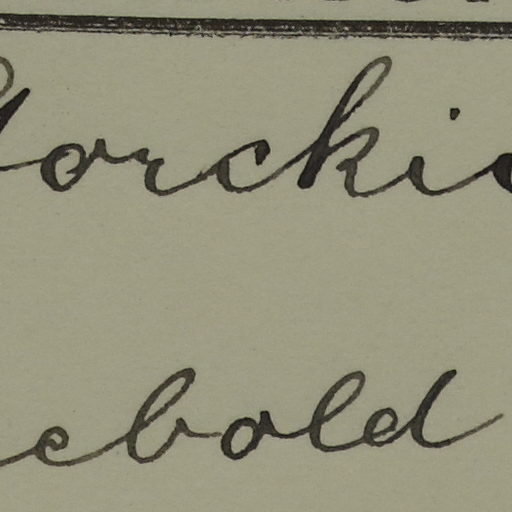 orckic
ebold